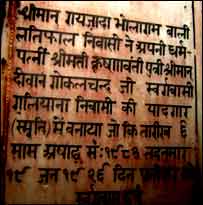 श्रीमान रायज़ादा भोलाराम बाली
लतिफाल निवासी ने अपनी धर्म-
पत्नी श्रीमती कृषणावंती पुत्री श्रीमान
दीवान गोकलचन्द जी स्वर्गवासी
गुलियाना निवासी की यादगार
(स्मृति) में बनाया जो कि तारीख ६
मास अषाढ़ सं: १९८३ तदनुसार
१९ जुन १९२६ दिन